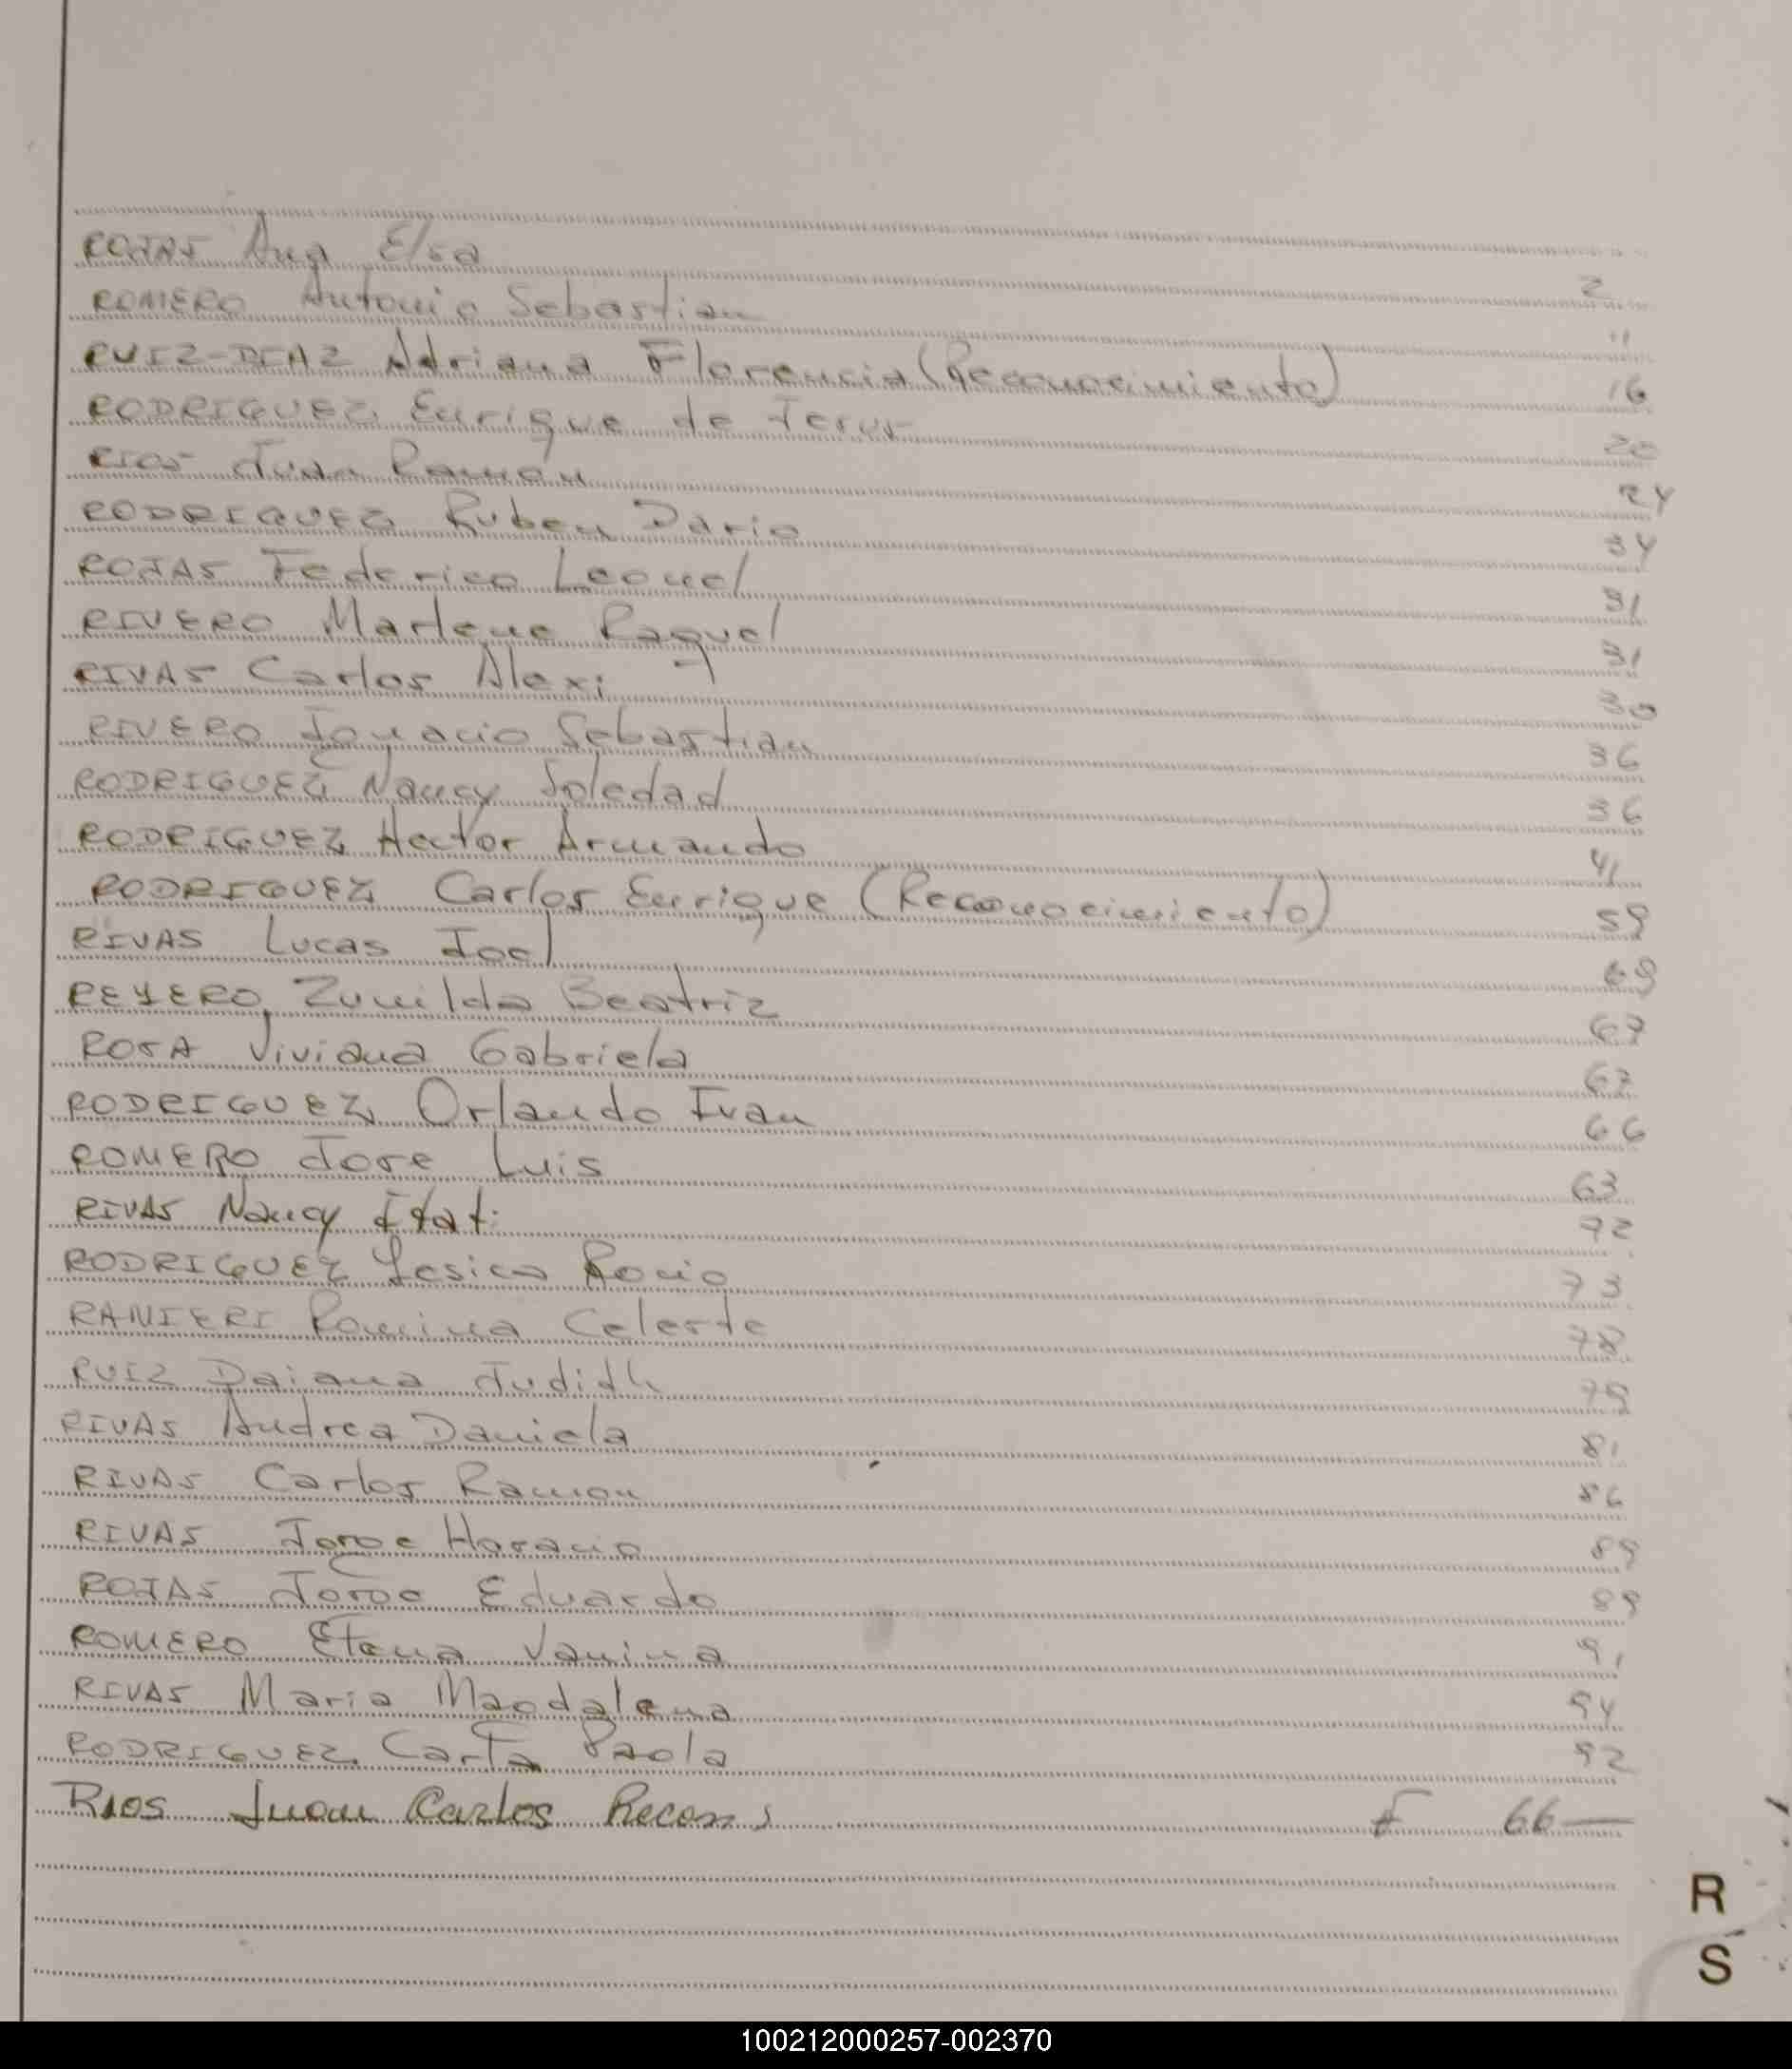 ROJAS Ana Elsa 2
ROMERO Antonio Sebastian 11
RUIZ-DIAZ Adriana Florencia (Reconocimiento) 16
RODRIGUEZ Enrique de Jesus 20
RIOS Juan Ramon 24
RODRIGUEZ Ruben Dario 34
ROJAS Federico Leonel 31
RIVERO Marlene Raquel 31
RIVAS Carlos Alexi 30
RIVERO Ignacio Sebastian 36
RODRIGUEZ Nancy Soledad 36
RODRIGUEZ Hector Armando 41
RODRIGUEZ Carlos Enrique (Reconocimiento) 59
RIVAS Lucas Joel 69
REYERO Zunilda Beatriz 67
ROSA Viviana Gabriela 67
RODRIGUEZ Orlando Ivan 66
ROMERO Jose Luis 63
RIVAS Nancy Itati 72
RODRIGUEZ Yesica Rocio 73
RANIERI Romina Celeste 78
RUIZ Daiana Judith 79
RIVAS Andrea Daniela 81
RIVAS Carlos Ramon 86
RIVAS Jorge Horacio 89
ROJAS Jorge Eduardo 89
ROMERO Elena Vanina 91
RIVAS Maria Magdalena 94
RODRIGUEZ Carla Paola 92
RIOS Juan Carlos Recon. F 66
R
S
100212000257-002370